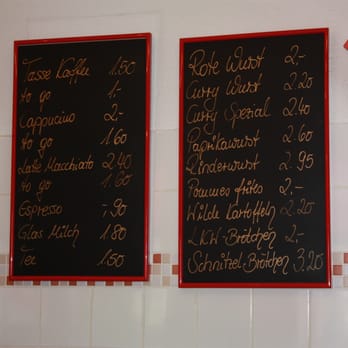 Tasse Kaffee 1.50
to go 1.-
Cappucino 2.-
to go 1.60
Latte Macchiato 2.40
to go 1.60
Espresso -.90
Glas Milch 1.80
Tee 1.50
Rote Wurst 2.-
Curry Wurst 2.20
Curry Spezial 2.40
Paprikawurst 2.60
Rinderwurst 2.95
Pommes frites 2.-
Wilde Kartoffeln 2.20
LKW-Brötchen 2.-
Schnitzel-Brötchen 3.20